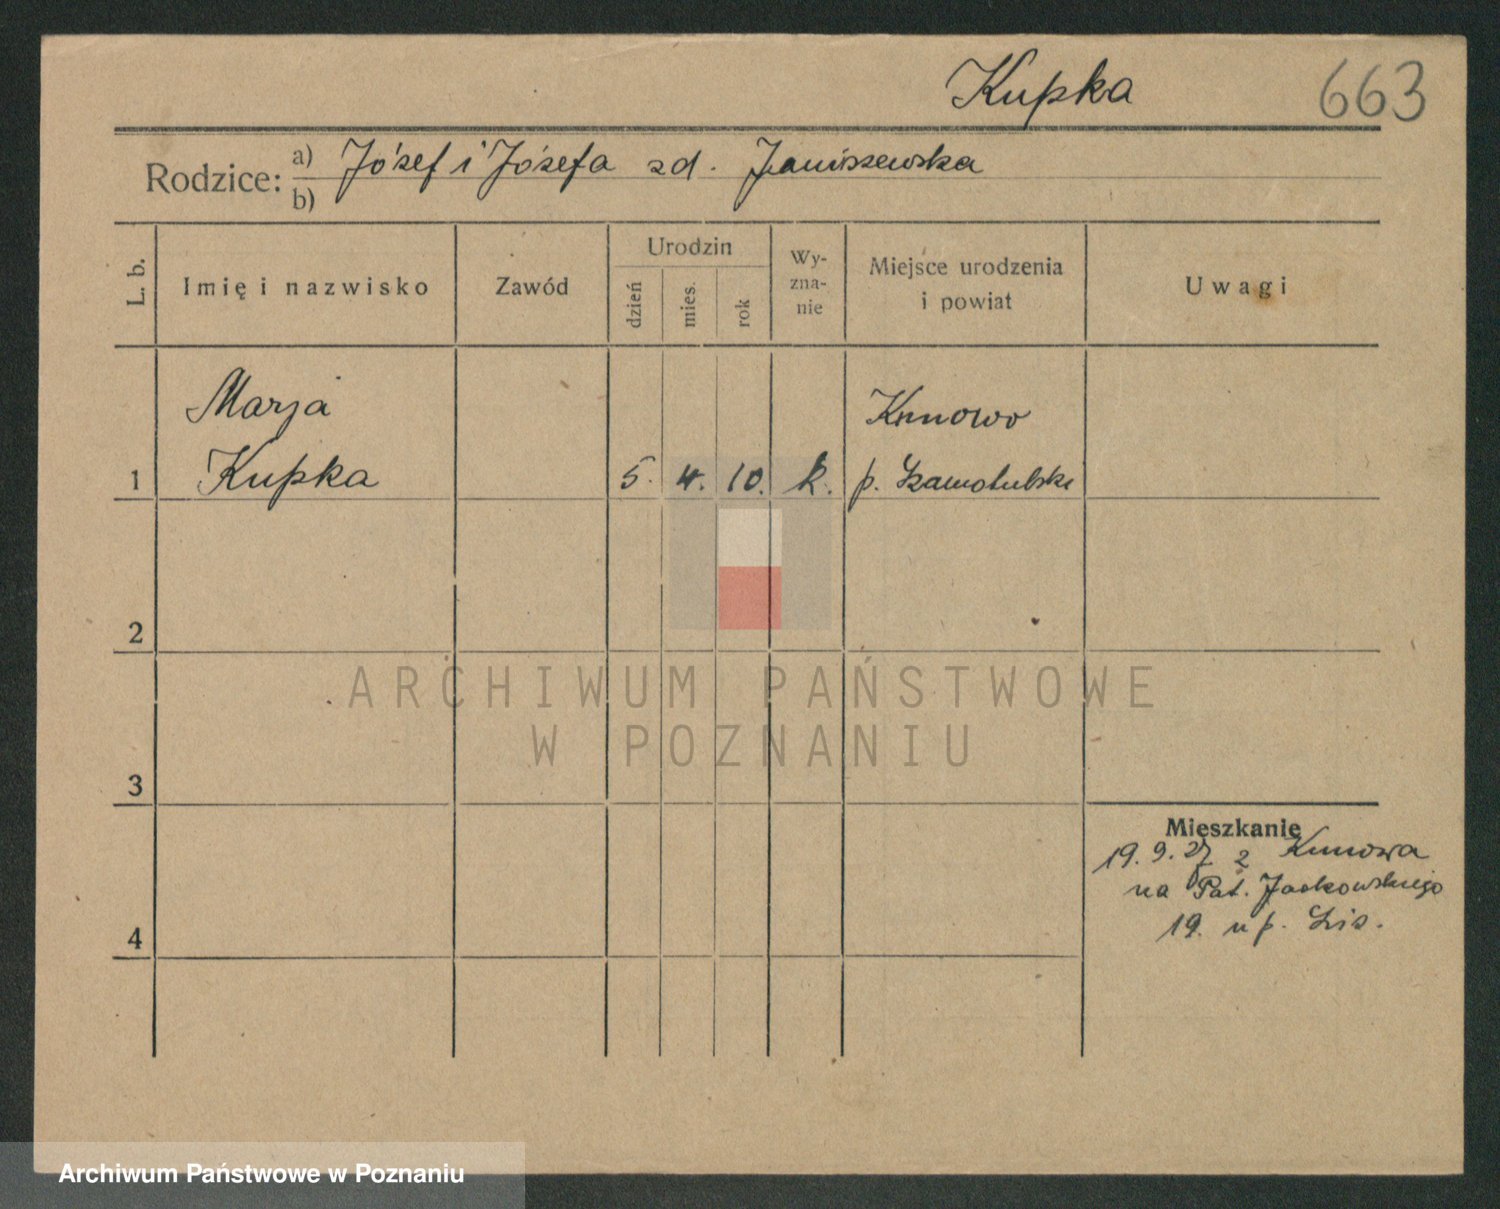 Kupka
663
Rodzice: a) Józef i Józefa zd. Janiszewska
b)
L. b.
Imię i nazwisko
Zawód
Urodzin
dzień
mies.
rok
Wy-
zna-
nie
Miejsce urodzenia
i powiat
Uwagi
Marja
Kupka
Knnowo
1
5. 4. 10. k. p. Szamotulski
2
3
4
Mieszkanie
19.9.27 z Kunowa
na Pat. Jackowskiego
19. u p. Lis.
ARCHIWUM PAŃSTWOWE
W POZNANIU
Archiwum Państwowe w Poznaniu